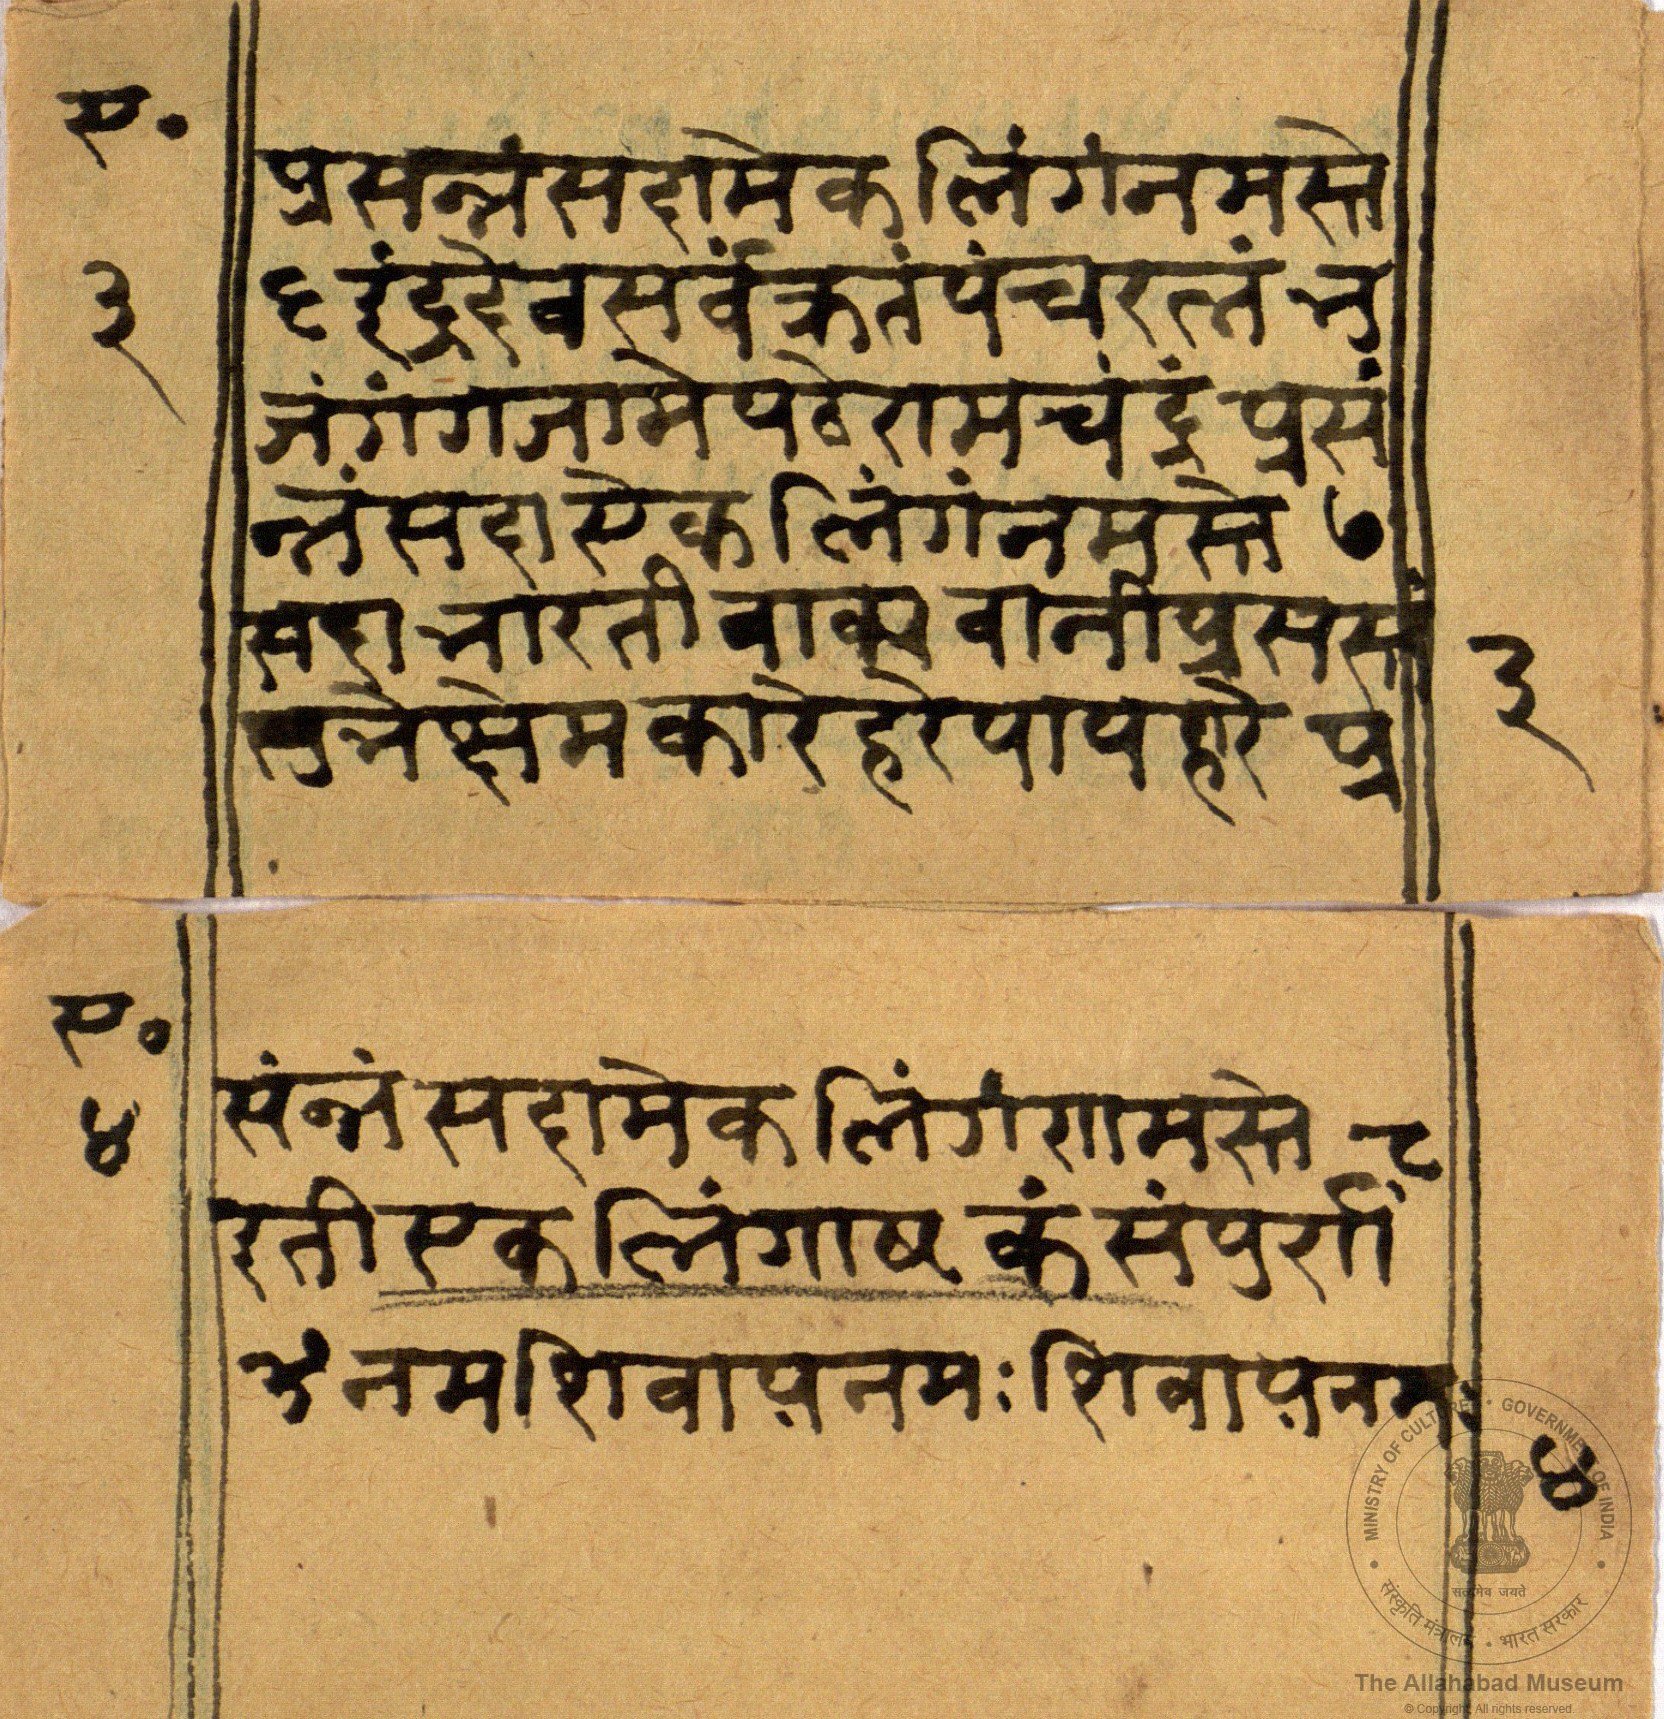 ए॰
प्रसन्नंसदामेकलिंगंनमस्ते
३
६इंदुदेवसर्वंक्रतंपंचरत्नंभ
जंगंगजामेपठेरामचंद्रंप्रसं
न्नंसदाऐकलिंगंनमस्ते ७
सदाभारतीवाक्यवानीप्रससं
३
सन्नेक्षेमकारेहरेपापहारे प्र
ए॰
संन्नंसदामेकलिंगंणमस्ते ८
४
इतीएकलिंगाष्टकंसंपुर्णं
नमशिवायनमःशिवायनमः
४
MINISTRY OF CULTURE • GOVERNMENT OF INDIA
सत्यमेव जयते
संस्कृति मंत्रालय • भारत सरकार
The Allahabad Museum
© Copyright. All rights reserved